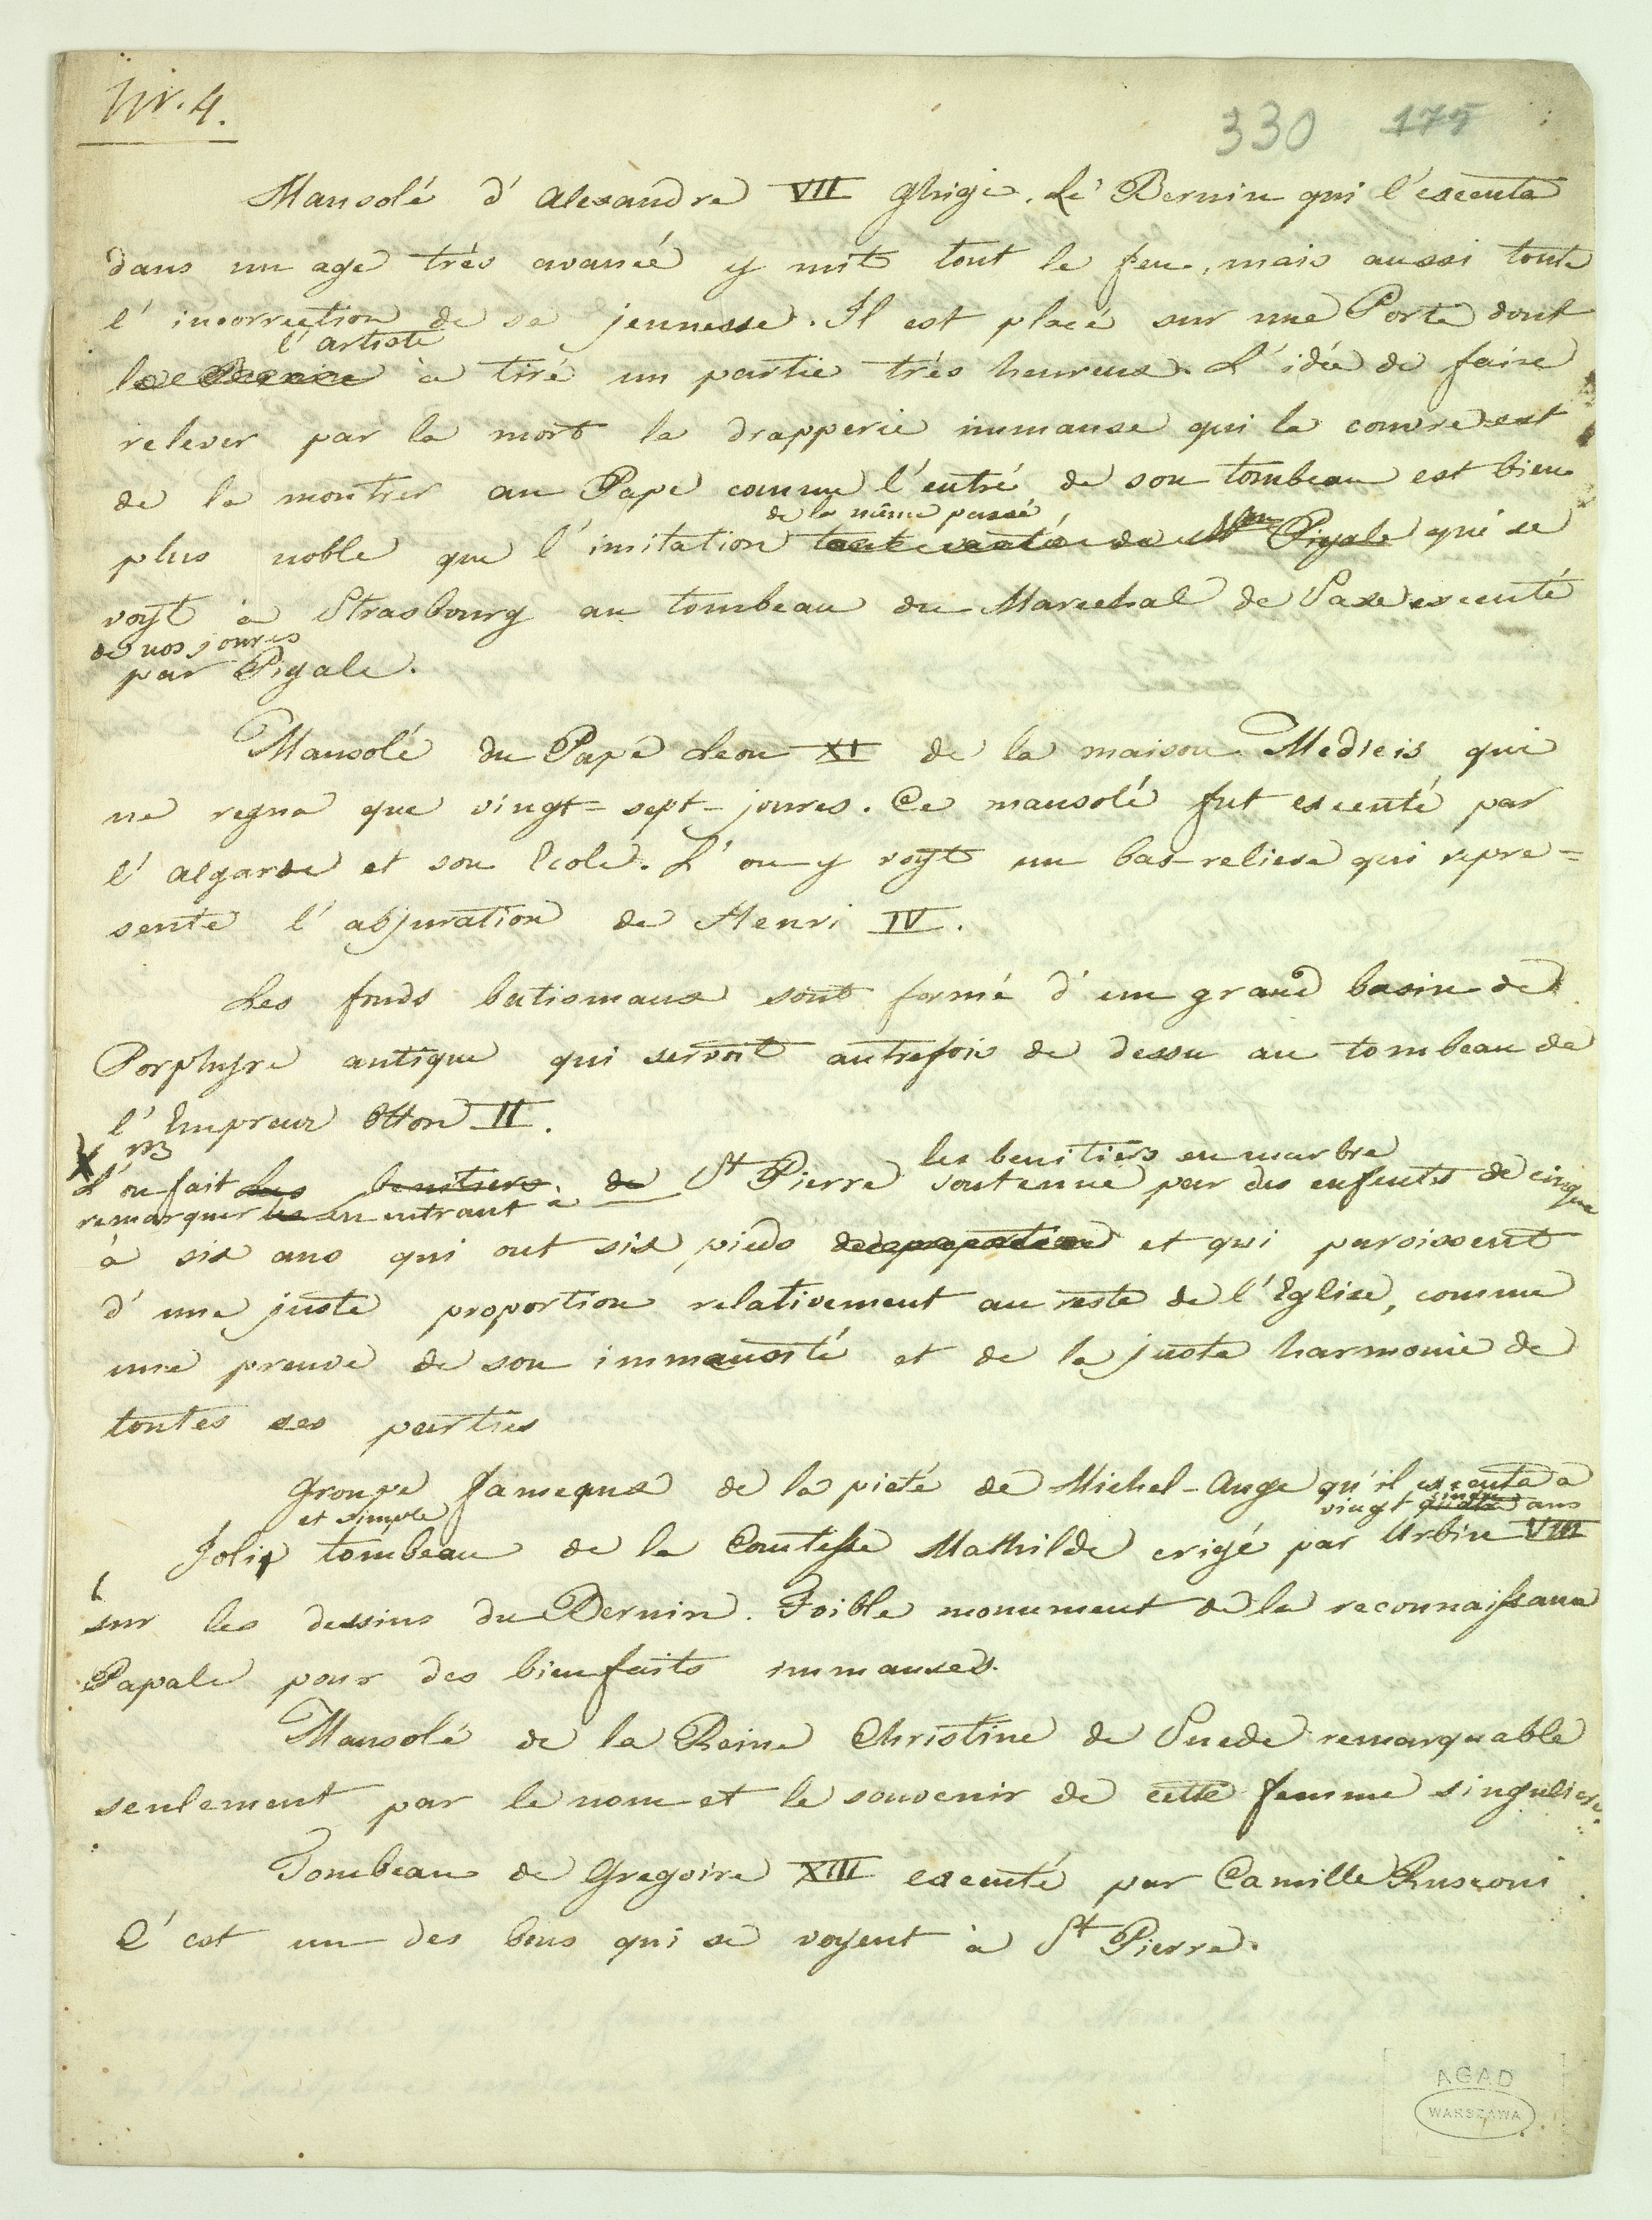 Nr. 4.
330 175
Mausolé d' Alexandre VII Ghigi. Le Bernin qui l'executa
dans un age très avancé y mit tout le feu, mais aussi toute
l' incorrection de sa jeunesse. Il est placé sur une Porte dont
l'artiste
le Bernin a tiré un partie très heureux. L'idée de faire
relever par la mort la drapperie immanse qui la couvre est
de la montrer au Pape comme l'entré de son tombeau est bien
de la même pensé
plus noble que l'imitation tant vantée de Mr Pigale qui se
voyt à Strasbourg au tombeau du Marechal de Saxe executé
de nos joures
par Pigale.
Mausolé du Pape Leon XI de la maison Medicis qui
ne regna que vingt=sept-joures. Ce mausolé fut executé par
l' algarde et son Ecole. L'on y voyt un bas-reliere qui repre=
sente l'abjuration de Henri IV.
Les fonds batismaux sont formé d'un grand basin de
Porphyre antique qui servoit autrefois de dessu au tombeau de
l'Empreur Otton II.
les benitiers en marbre
L'on fait les benitiers de St Pierre soutenue par des enfents de cinque
remarquer les en entrant à
à six ans qui ont six pieds de proportion et qui paroissent
d' une juste proportion relativement au reste de l'Eglise, comme
une preuve de son immansité et de la juste harmonie de
toutes ses parties
Groupe fameux de la pieté de Michel-Ange qu'il executa a
vingt quatre cinque ans
et simple
Joli tombeau de la Comtesse Mathilde erigé par Urbin VIII
sur les dessins du Bernin. Foible monument de la reconnaissance
Papale pour des bienfaits immanses.
Mausolé de la Reine Christine de Suede remarquable
seulement par le nom et le souvenir de cette femme singuliere.
Tombeau de Gregoire XIII executé par Camille Rusconi
C'est un des bons qui se voyent à St Pierre.
AGAD
WARSZAWA